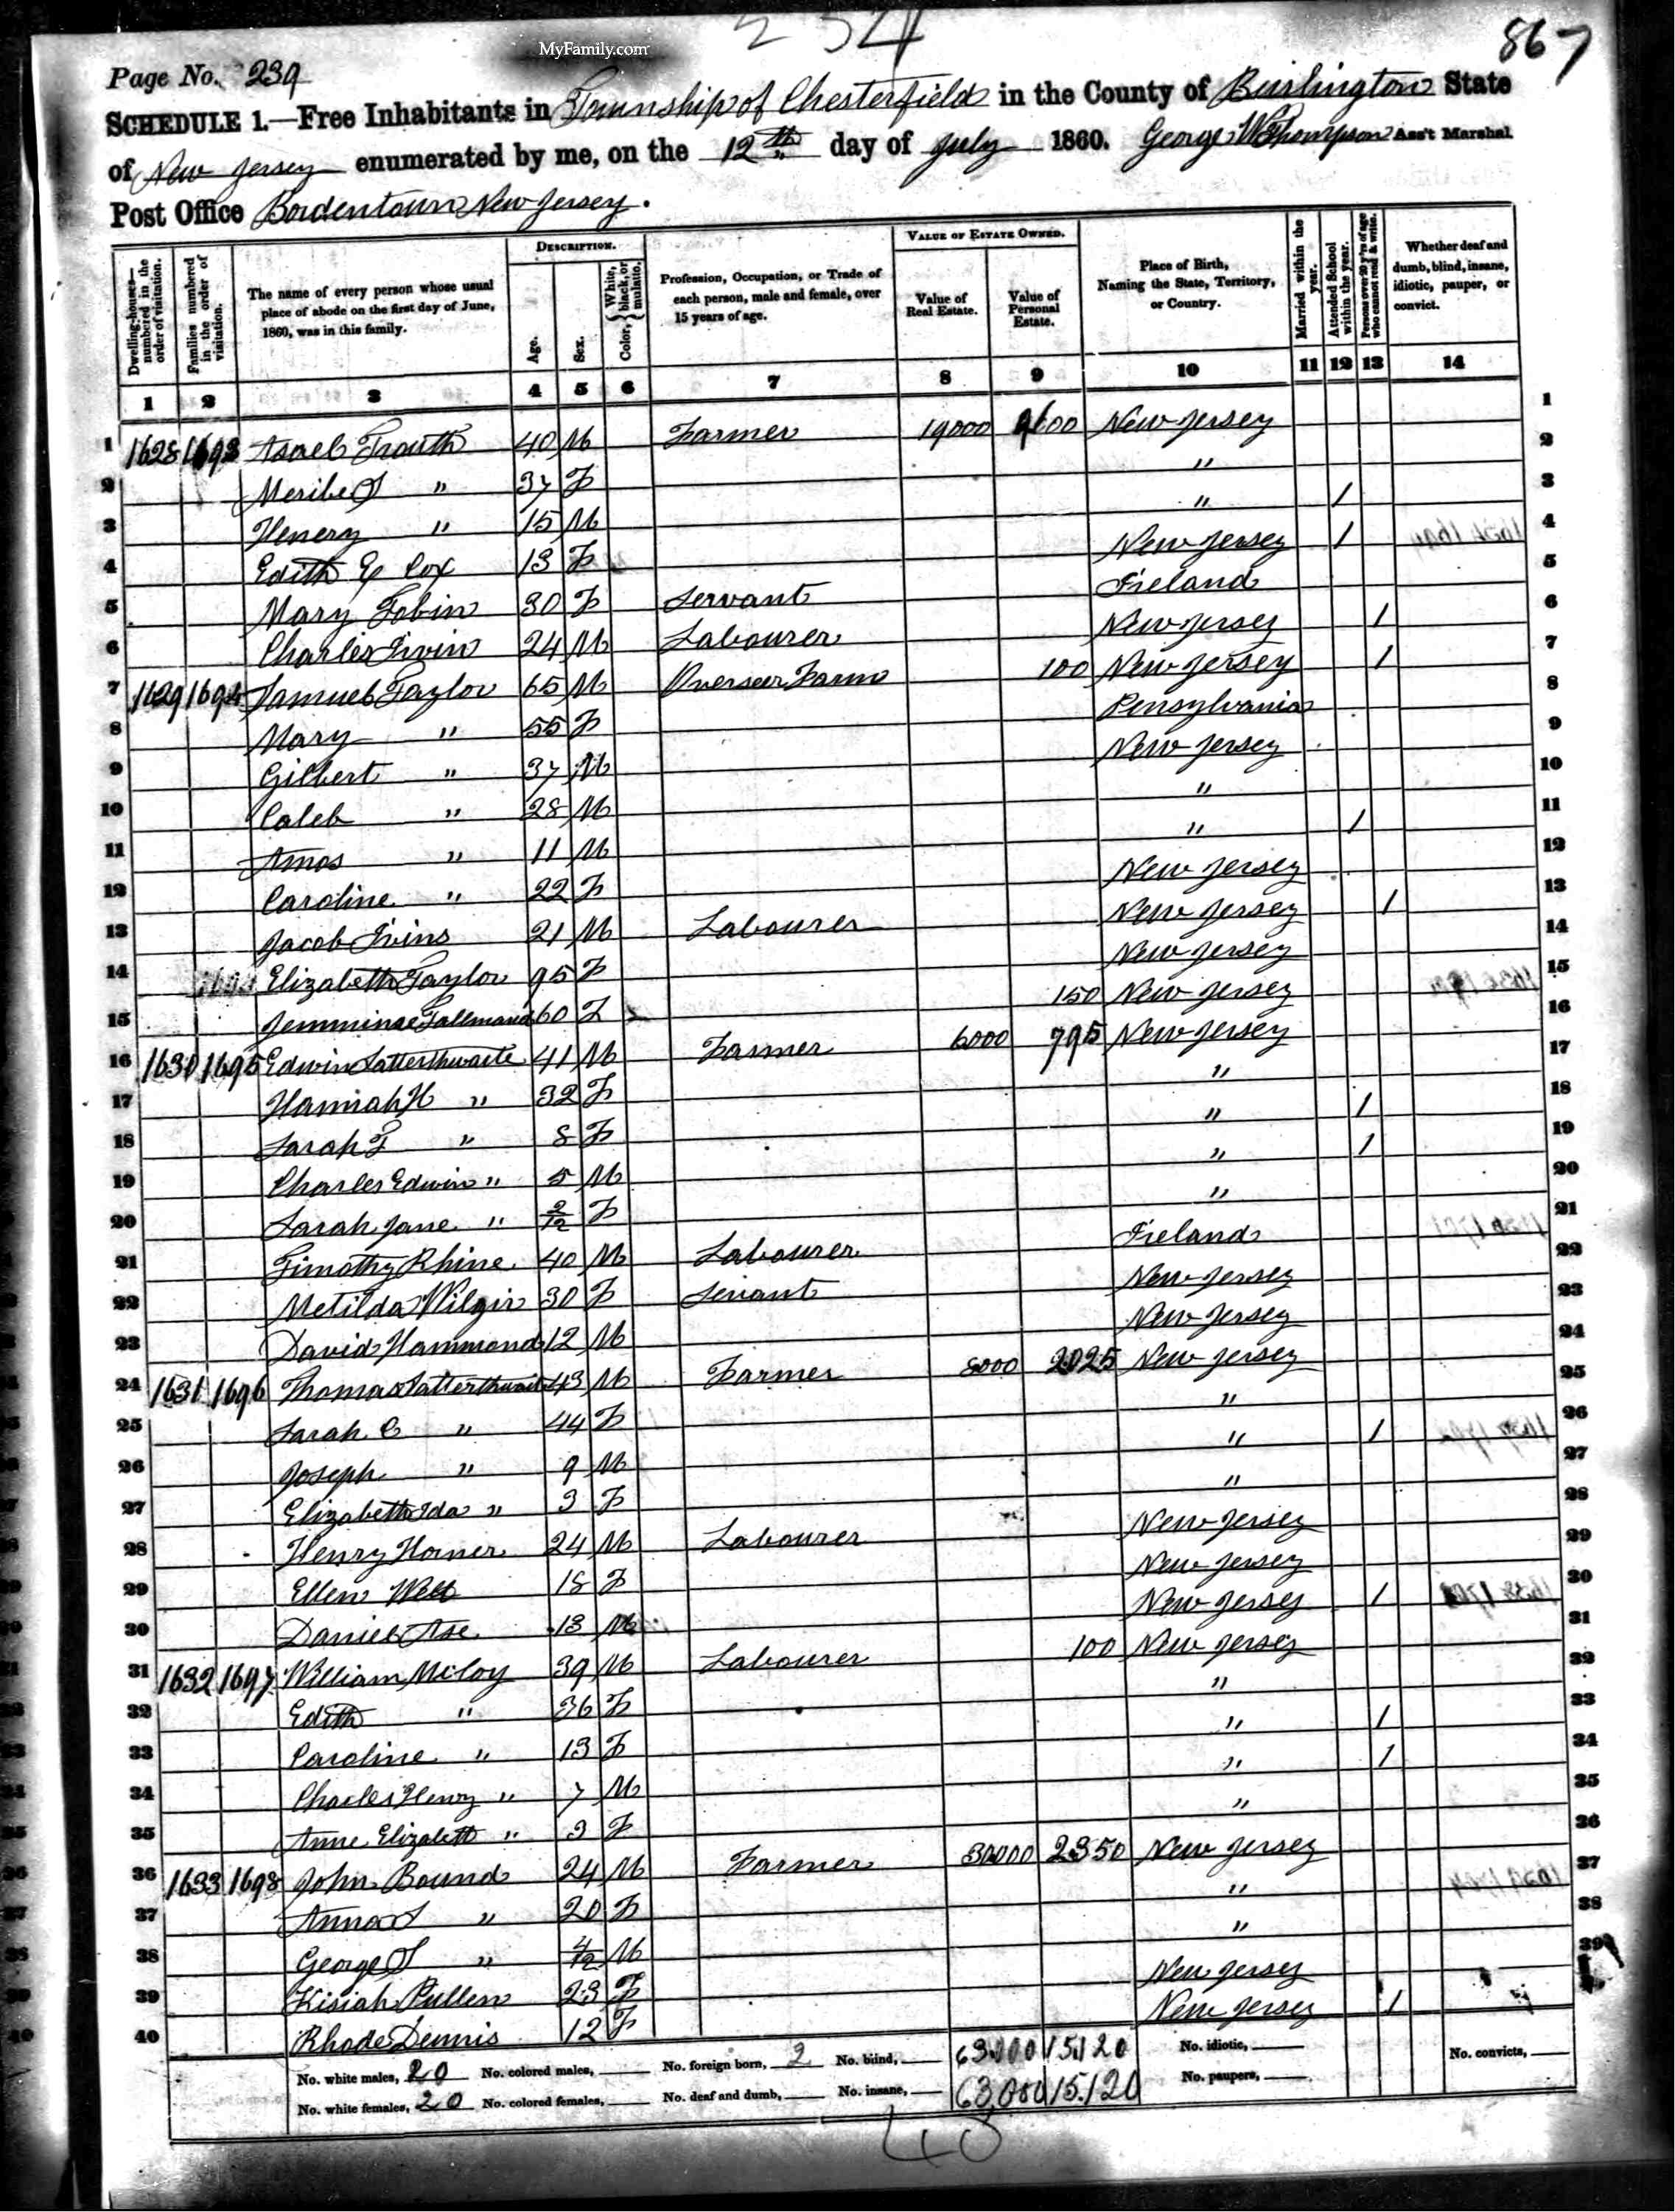 MyFamily.com
234
867
Page No. 239
SCHEDULE 1.—Free Inhabitants in Township of Chesterfield in the County of Burlington State
of New Jersey enumerated by me, on the 12th day of July 1860. George W Thompson Ass't Marshal
Post Office Bordentown New Jersey.
Dwelling-houses—numbered in the order of visitation.
Families numbered in the order of visitation.
The name of every person whose usual place of abode on the first day of June, 1860, was in this family.
DESCRIPTION.
Age.
Sex.
Color, { White, black, or mulatto.
Profession, Occupation, or Trade of each person, male and female, over 15 years of age.
VALUE OF ESTATE OWNED.
Value of Real Estate.
Value of Personal Estate.
Place of Birth, Naming the State, Territory, or Country.
Married within the year.
Attended School within the year.
Persons over 20 y'rs of age who cannot read & write.
Whether deaf and dumb, blind, insane, idiotic, pauper, or convict.
1 2 3 4 5 6 7 8 9 10 11 12 13 14
1 1628 1693 Asael Trouth 40 M Farmer 19000 9600 New Jersey 1
2 Meribe S " 37 F " 2
3 Henery " 15 M " / 3
4 Edith E Cox 13 F New Jersey / 4
5 Mary Tobin 30 F Servant Ireland 5
6 Charles Ivin 24 M Labourer New Jersey / 6
7 1629 1694 Samuel Taylor 65 M Overseer Farm 100 New Jersey / 7
8 Mary " 55 F Pensylvania 8
9 Gilbert " 37 M New Jersey 9
10 Caleb " 28 M " 10
11 Amos " 11 M " / 11
12 Caroline " 22 F New Jersey 12
13 Jacob Ivins 21 M Labourer New Jersey / 13
14 Elizabeth Taylor 95 F New Jersey 14
15 60 F 150 New Jersey 15
16 1630 1695 Edwin Satterthwaite 41 M Farmer 6000 795 New Jersey 16
17 Hannah H " 32 F " 17
18 Sarah F " 8 F " / 18
19 Charles Edwin " 5 M " / 19
20 Sarah Jane " 2/12 F " 20
21 Timothy Rhine 40 M Labourer Ireland 21
22 Metilda 30 F Servant New Jersey 22
23 David Hammond 12 M New Jersey 23
24 1631 1696 Thomas Satterthwaite 43 M Farmer 8000 2025 New Jersey 24
25 Sarah C " 44 F " 25
26 Joseph " 9 M " / 26
27 Elizabeth Ida " 3 F " 27
28 Henry Horner 24 M Labourer New Jersey 28
29 Ellen 18 F New Jersey 29
30 Daniel Ase 13 M New Jersey / 30
31 1632 1697 William Miloy 39 M Labourer 100 New Jersey 31
32 Edith " 36 F " 32
33 Caroline " 13 F " / 33
34 Charles Henry " 7 M " / 34
35 Anne Elizabeth " 3 F " 35
36 1633 1698 John Bound 24 M Farmer 30000 2350 New Jersey 36
37 Anna S " 20 F " 37
38 George S " 4/12 M " 38
39 Kisiah Pullen 23 F New Jersey 39
40 Rhode Dennis 12 F New Jersey /
No. white males, 20 No. colored males, No. foreign born, 2 No. blind, 63.000 15.120 No. idiotic, No. convicts,
No. white females, 20 No. colored females, No. deaf and dumb, No. insane, 63,000 15.120 No. paupers,
40